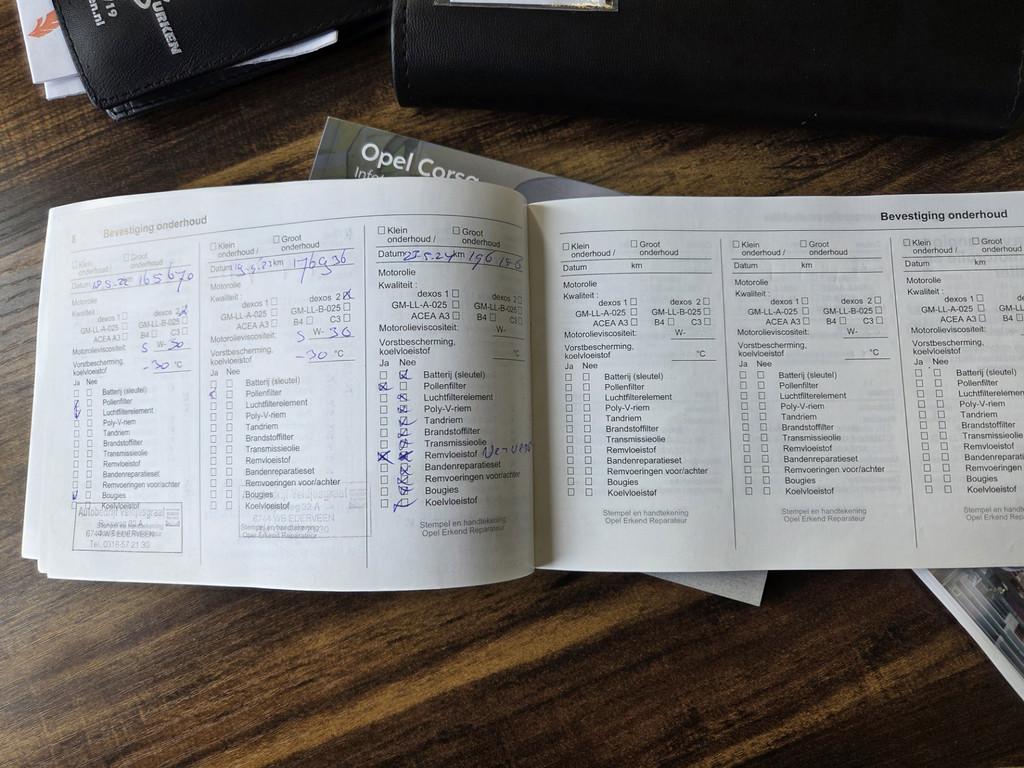 /19
en.nl
SURKEN
Opel Corsa
8 Bevestiging onderhoud
☐ Klein onderhoud / ☐ Groot onderhoud
Datum 18.5.22 km 165670
Motorolie
Kwaliteit :
dexos 1 ☐ dexos 2 ☒
GM-LL-A-025 ☐ GM-LL-B-025 ☐
ACEA A3 ☐ B4 ☐ C3 ☐
Motorolieviscositeit: 5 W- 30
Vorstbescherming,
koelvloeistof -30 °C
Ja Nee
Batterij (sleutel)
Pollenfilter
Luchtfilterelement
Poly-V-riem
Tandriem
Brandstoffilter
Transmissieolie
Remvloeistof
Bandenreparatieset
Remvoeringen voor/achter
Bougies
Koelvloeistof
Stempel en handtekening
Opel Erkend Reparateur
Autobedrijf
6744 WS EDERVEEN
Tel. 0318-57 21 30
☐ Klein onderhoud / ☐ Groot onderhoud
Datum km 176936
Motorolie
Kwaliteit :
dexos 1 ☐ dexos 2 ☒
GM-LL-A-025 ☐ GM-LL-B-025 ☐
ACEA A3 ☐ B4 ☐ C3 ☐
Motorolieviscositeit: 5 W- 30
Vorstbescherming,
koelvloeistof -30 °C
Ja Nee
Batterij (sleutel)
Pollenfilter
Luchtfilterelement
Poly-V-riem
Tandriem
Brandstoffilter
Transmissieolie
Remvloeistof
Bandenreparatieset
Remvoeringen voor/achter
Bougies
Koelvloeistof
6744 WS EDERVEEN
Stempel en handtekening
Opel Erkend Reparateur
☐ Klein onderhoud / ☐ Groot onderhoud
Datum km 196
Motorolie
Kwaliteit :
dexos 1 ☐ dexos 2 ☐
GM-LL-A-025 ☐ GM-LL-B-025 ☐
ACEA A3 ☐ B4 ☐ C3 ☐
Motorolieviscositeit: W-
Vorstbescherming,
koelvloeistof °C
Ja Nee
Batterij (sleutel)
Pollenfilter
Luchtfilterelement
Poly-V-riem
Tandriem
Brandstoffilter
Transmissieolie
Remvloeistof
Bandenreparatieset
Remvoeringen voor/achter
Bougies
Koelvloeistof
Stempel en handtekening
Opel Erkend Reparateur
Bevestiging onderhoud
☐ Klein onderhoud / ☐ Groot onderhoud
Datum km
Motorolie
Kwaliteit :
dexos 1 ☐ dexos 2 ☐
GM-LL-A-025 ☐ GM-LL-B-025 ☐
ACEA A3 ☐ B4 ☐ C3 ☐
Motorolieviscositeit: W-
Vorstbescherming,
koelvloeistof °C
Ja Nee
☐ ☐ Batterij (sleutel)
☐ ☐ Pollenfilter
☐ ☐ Luchtfilterelement
☐ ☐ Poly-V-riem
☐ ☐ Tandriem
☐ ☐ Brandstoffilter
☐ ☐ Transmissieolie
☐ ☐ Remvloeistof
☐ ☐ Bandenreparatieset
☐ ☐ Remvoeringen voor/achter
☐ ☐ Bougies
☐ ☐ Koelvloeistof
Stempel en handtekening
Opel Erkend Reparateur
☐ Klein onderhoud / ☐ Groot onderhoud
Datum km
Motorolie
Kwaliteit :
dexos 1 ☐ dexos 2 ☐
GM-LL-A-025 ☐ GM-LL-B-025 ☐
ACEA A3 ☐ B4 ☐ C3 ☐
Motorolieviscositeit: W-
Vorstbescherming,
koelvloeistof °C
Ja Nee
☐ ☐ Batterij (sleutel)
☐ ☐ Pollenfilter
☐ ☐ Luchtfilterelement
☐ ☐ Poly-V-riem
☐ ☐ Tandriem
☐ ☐ Brandstoffilter
☐ ☐ Transmissieolie
☐ ☐ Remvloeistof
☐ ☐ Bandenreparatieset
☐ ☐ Remvoeringen voor/achter
☐ ☐ Bougies
☐ ☐ Koelvloeistof
Stempel en handtekening
Opel Erkend Reparateur
☐ Klein onderhoud / ☐ Groot
Datum km
Motorolie
Kwaliteit :
dexos 1 ☐
GM-LL-A-025 ☐ GM-LL
ACEA A3 ☐ B4
Motorolieviscositeit:
Vorstbescherming,
koelvloeistof
Ja Nee
☐ ☐ Batterij (sleutel)
☐ ☐ Pollenfilter
☐ ☐ Luchtfilterelement
☐ ☐ Poly-V-riem
☐ ☐ Tandriem
☐ ☐ Brandstoffilter
☐ ☐ Transmissieolie
☐ ☐ Remvloeistof
☐ ☐ Bandenreparatie
☐ ☐ Remvoeringen
☐ ☐ Bougies
☐ ☐ Koelvloeistof
Stempel en
Opel Erkend